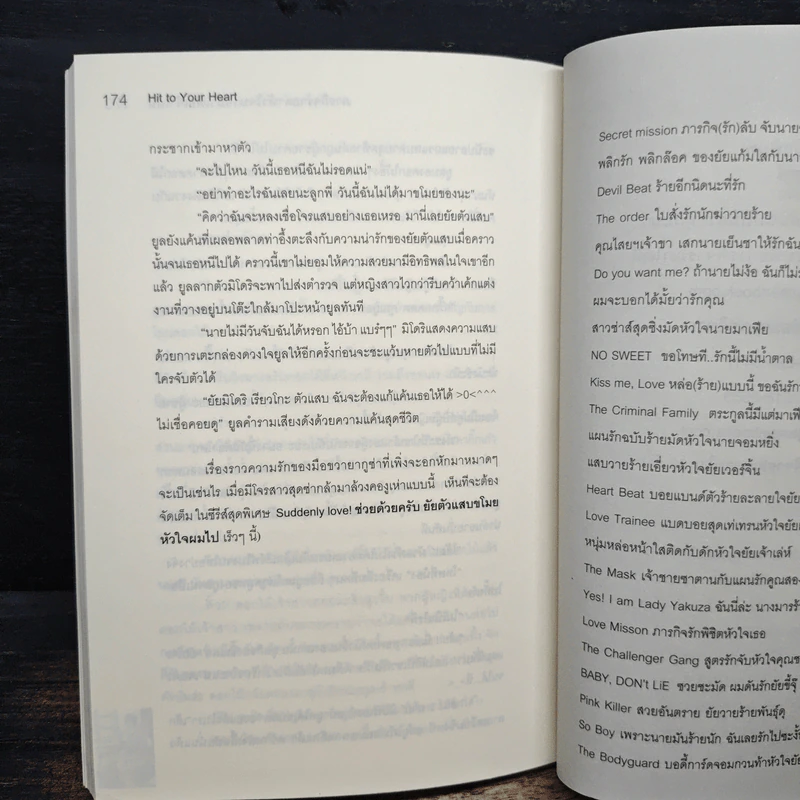 174 Hit to Your Heart
กระชากเข้ามาหาตัว
“จะไปไหน วันนี้เธอหนีฉันไม่รอดแน่”
“อย่าทำอะไรฉันเลยนะลูกพี่ วันนี้ฉันไม่ได้มาขโมยของนะ”
“คิดว่าฉันจะหลงเชื่อโจรแสบอย่างเธอเหรอ มานี่เลยยัยตัวแสบ”
ยูลยังแค้นที่เผลอพลาดท่าอึ้งตะลึงกับความน่ารักของยัยตัวแสบเมื่อคราว
นั้นจนเธอหนีไปได้ คราวนี้เขาไม่ยอมให้ความสวยมามีอิทธิพลในใจเขาอีก
แล้ว ยูลลากตัวมิโดริจะพาไปส่งตำรวจ แต่หญิงสาวไวกว่ารีบคว้าเค้กแต่ง
งานที่วางอยู่บนโต๊ะใกล้มาโปะหน้ายูลทันที
“นายไม่มีวันจับฉันได้หรอก ไอ้บ้า แบร่ๆๆ” มิโดริแสดงความแสบ
ด้วยการเตะกล่องดวงใจยูลให้อีกครั้งก่อนจะชะแว้บหายตัวไปแบบที่ไม่มี
ใครจับตัวได้
“ยัยมิโดริ เรียวโกะ ตัวแสบ ฉันจะต้องแก้แค้นเธอให้ได้ >0<^^^
ไม่เชื่อคอยดู” ยูลคำรามเสียงดังด้วยความแค้นสุดชีวิต
เรื่องราวความรักของมือขวายากูซ่าที่เพิ่งจะอกหักมาหมาดๆ
จะเป็นเช่นไร เมื่อมีโจรสาวสุดซ่ากล้ามาล้วงคองูเห่าแบบนี้ เห็นทีจะต้อง
จัดเต็ม ในซีรีส์สุดพิเศษ Suddenly love! ช่วยด้วยครับ ยัยตัวแสบขโมย
หัวใจผมไป เร็วๆ นี้)
Secret mission ภารกิจ(รัก)ลับ จับนาย
พลิกรัก พลิกล๊อค ของยัยแก้มใสกับนา
Devil Beat ร้ายอีกนิดนะที่รัก
The order ใบสั่งรักนักฆ่าวายร้าย
คุณไสยฯเจ้าขา เสกนายเย็นชาให้รักฉัน
Do you want me? ถ้านายไม่ง้อ ฉันก็ไม่
ผมจะบอกได้มั้ยว่ารักคุณ
สาวซ่าส์สุดซึ่งมัดหัวใจนายมาเฟีย
NO SWEET ขอโทษที..รักนี้ไม่มีน้ำตาล
Kiss me, Love หล่อ(ร้าย)แบบนี้ ขอฉันรัก
The Criminal Family ตระกูลนี้มีแต่มาเฟีย
แผนรักฉบับร้ายมัดหัวใจนายจอมหยิ่ง
แสบวายร้ายเอี่ยวหัวใจยัยเวอร์จิ้น
Heart Beat บอยแบนด์ตัวร้ายละลายใจยัย
Love Trainee แบดบอยสุดเท่เทรนหัวใจยัย
หนุ่มหล่อหน้าใสติดกับดักหัวใจยัยเจ้าเล่ห์
The Mask เจ้าชายซาตานกับแผนรักคูณสอง
Yes! I am Lady Yakuza ฉันนี่ล่ะ นางมารร้
Love Misson ภารกิจรักพิชิตหัวใจเธอ
The Challenger Gang สูตรรักจับหัวใจคุณช
BABY, DON't LiE ซวยซะมัด ผมดันรักยัยขี้จุ๊
Pink Killer สวยอันตราย ยัยวายร้ายพันธุ์ดุ
So Boy เพราะนายมันร้ายนัก ฉันเลยรักไปซะงั้
The Bodyguard บอดี้การ์ดจอมกวนท้าหัวใจยัย